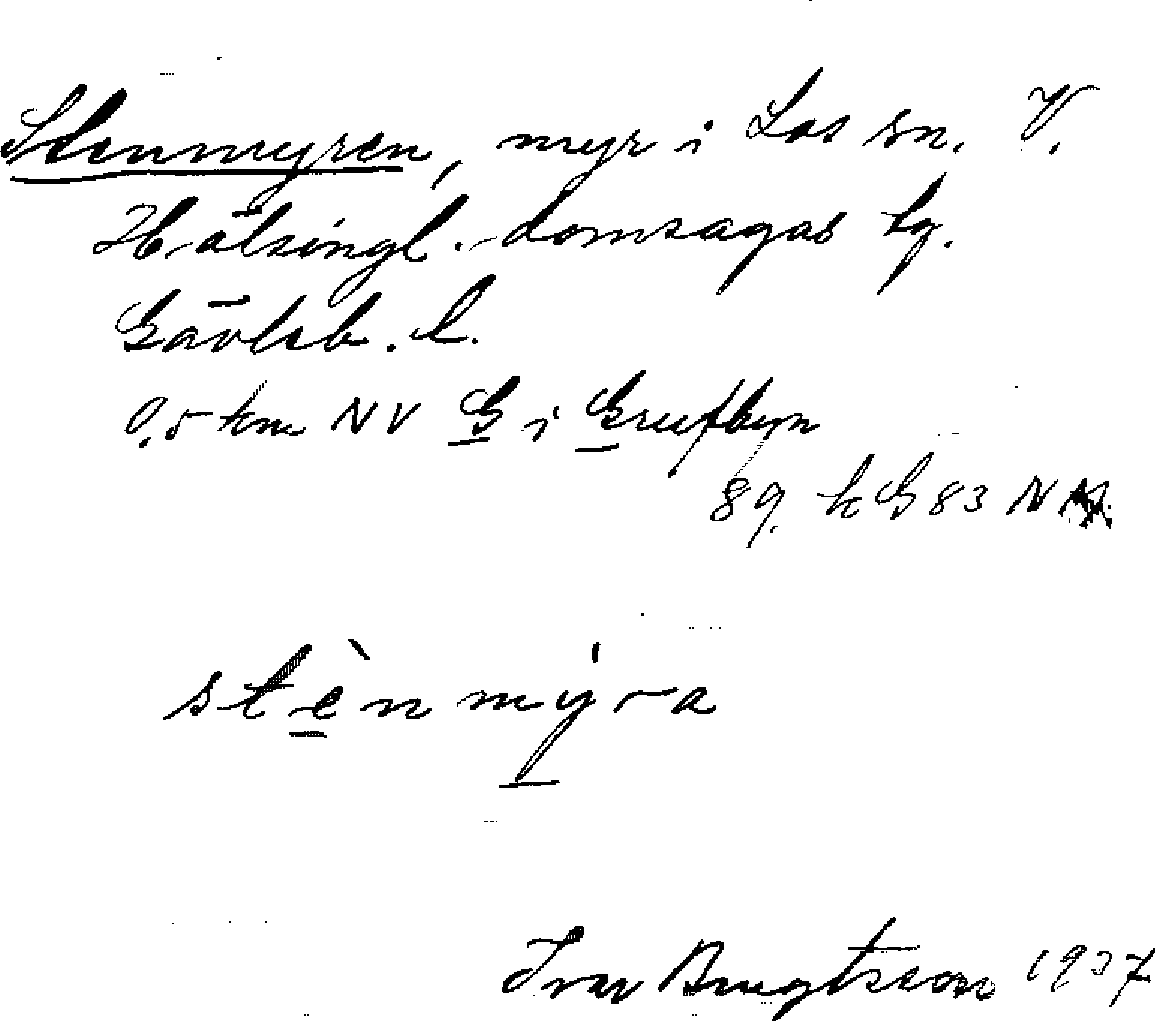 Stenmyren, myr i Los sn. V.
Hälsingl.-domsagas tg.
Gävleb. l.
0,5 km NV G i Grufbyn
89. k G 83 N
stènmýra
Ivar Bengtsson 1937